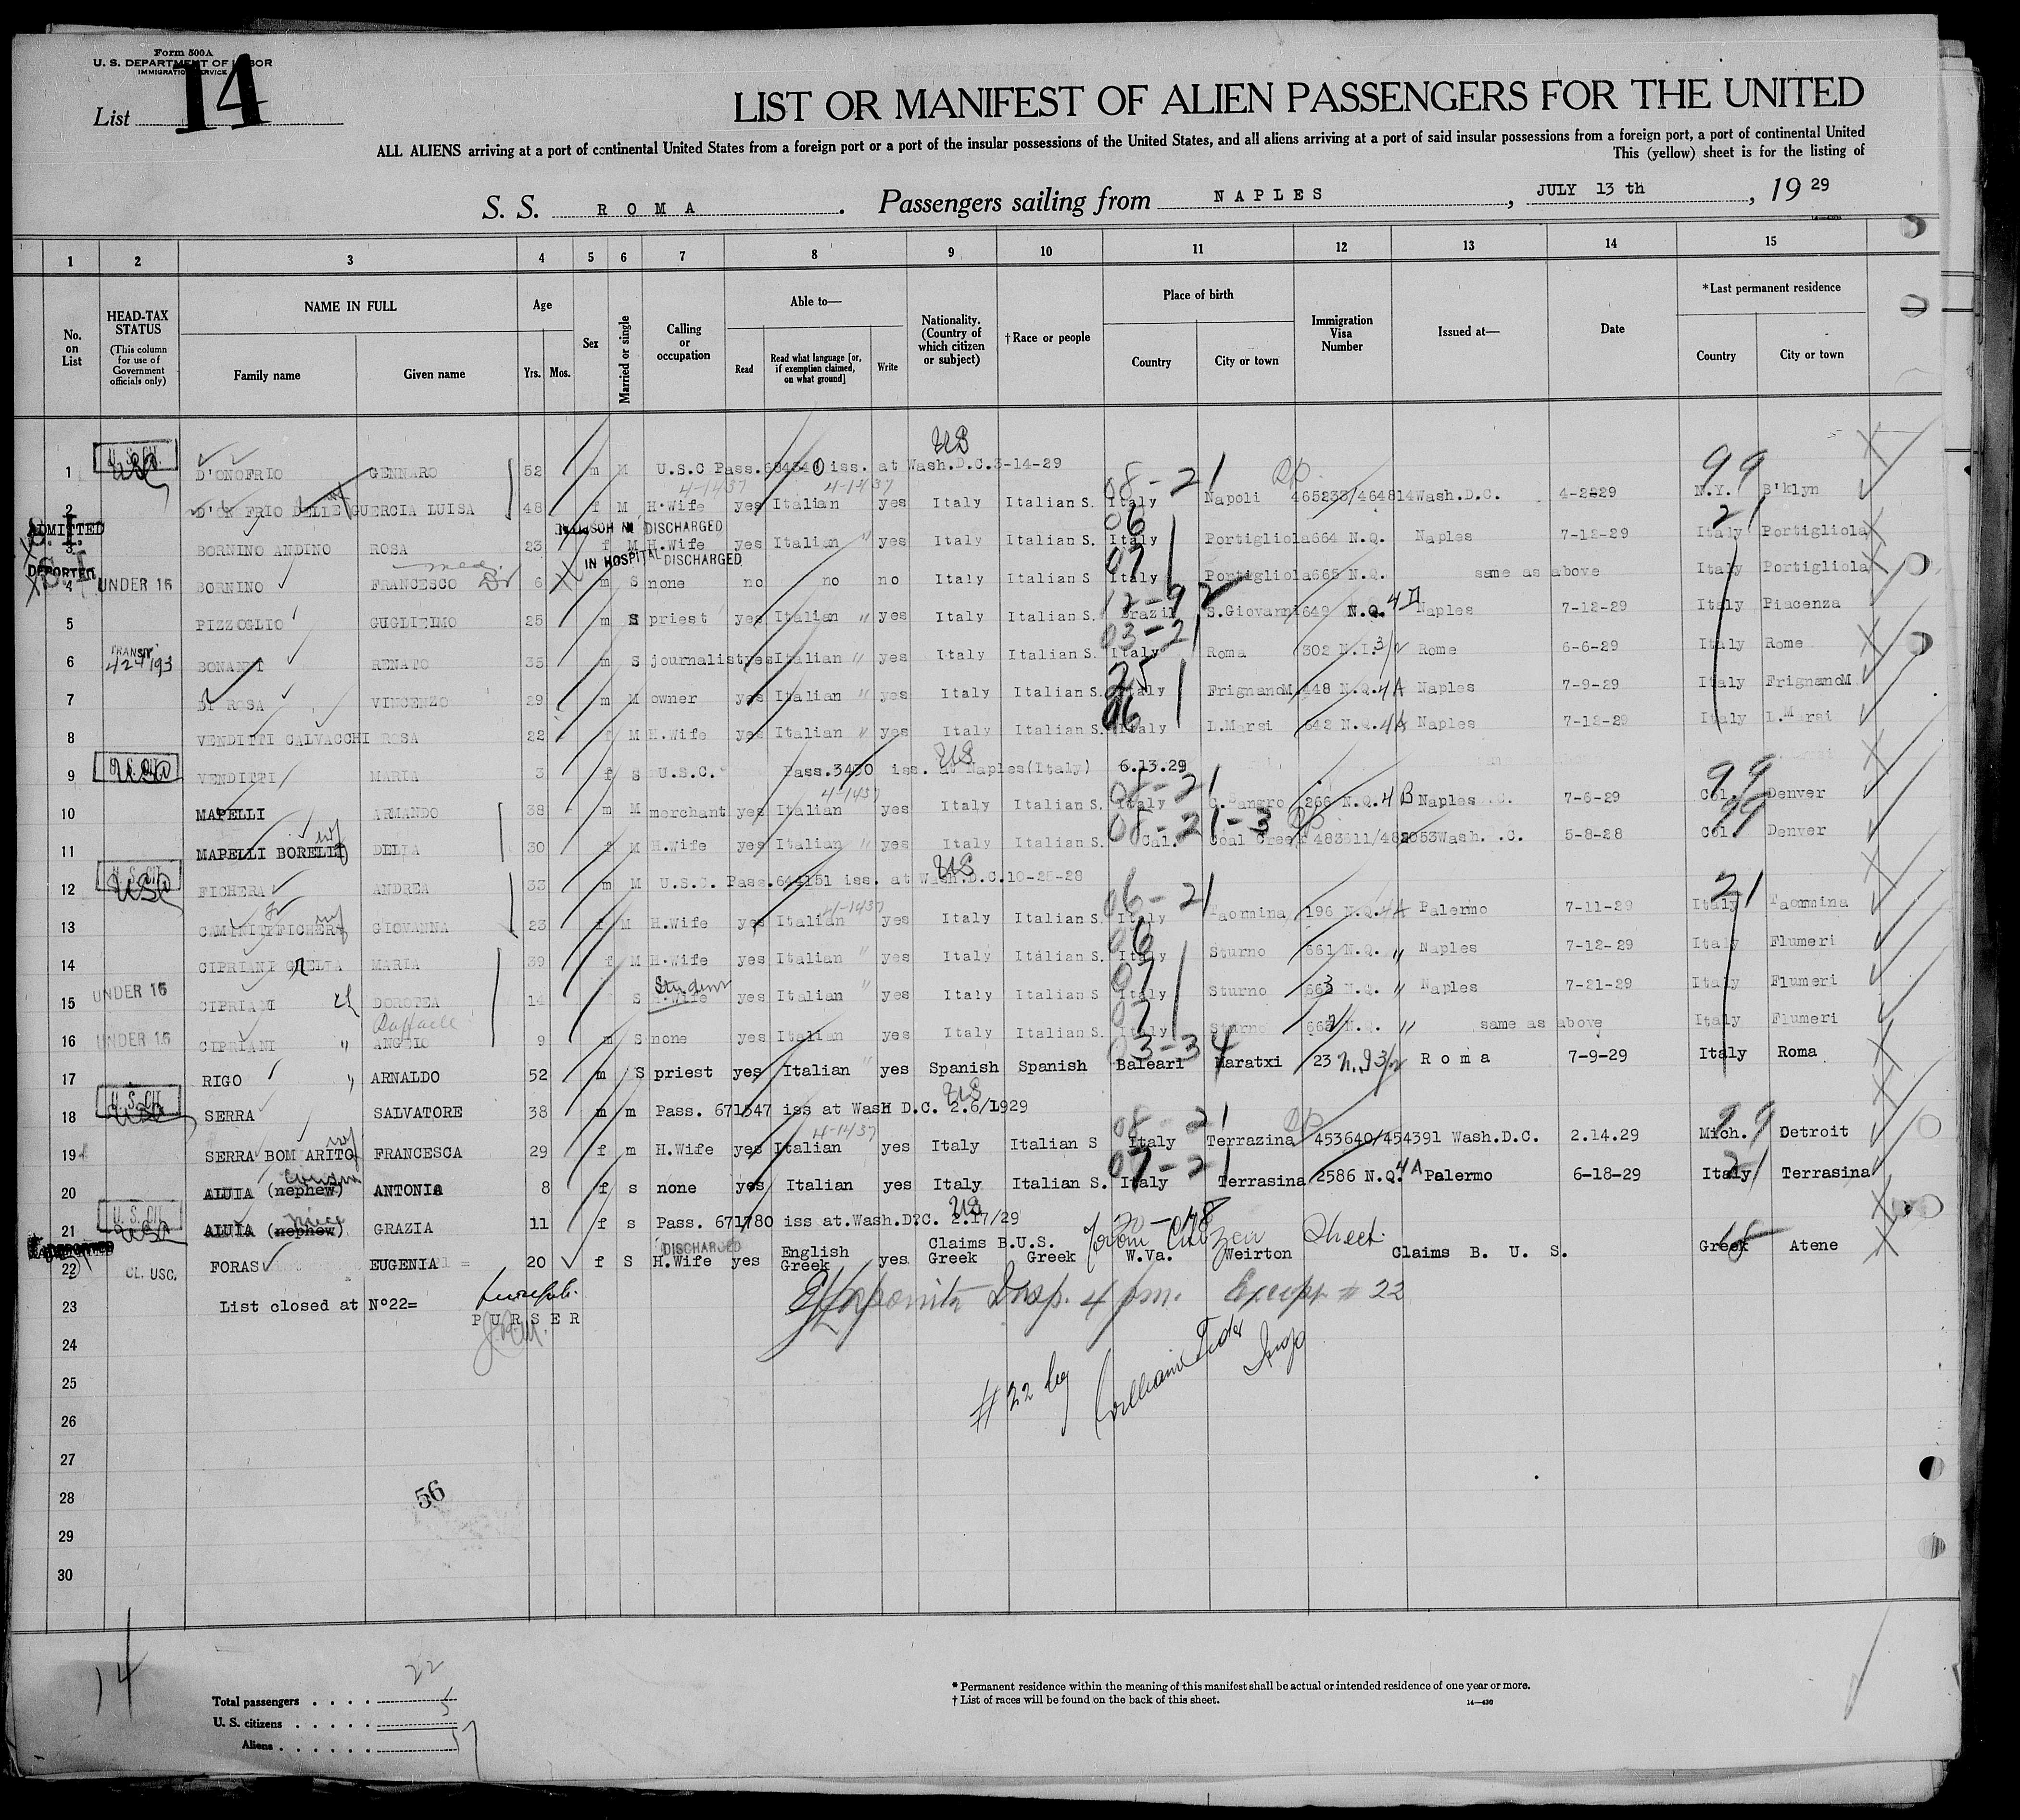 Form 500A
U. S. DEPARTMENT OF LABOR
IMMIGRATION SERVICE
List 14
LIST OR MANIFEST OF ALIEN PASSENGERS FOR THE UNITED
ALL ALIENS arriving at a port of continental United States from a foreign port or a port of the insular possessions of the United States, and all aliens arriving at a port of said insular possessions from a foreign port, a port of continental United
This (yellow) sheet is for the listing of
S. S. ROMA. Passengers sailing from NAPLES, JULY 13 th, 19 29
1 2 3 4 5 6 7 8 9 10 11 12 13 14 15
No. on List
HEAD-TAX STATUS (This column for use of Government officials only)
NAME IN FULL
Family name Given name
Age Yrs. Mos.
Sex
Married or single
Calling or occupation
Able to—
Read
Read what language [or, if exemption claimed, on what ground]
Write
Nationality. (Country of which citizen or subject)
†Race or people
Place of birth
Country City or town
Immigration Visa Number
Issued at—
Date
*Last permanent residence
Country City or town
1 U.S. CIT. D'ONOFRIO GENNARO 52 m M U.S.C Pass. iss. at Wash.D.C.3-14-29 US 99
2 GUERCIA LUISA 48 f M H.Wife yes Italian yes Italy Italian S. Italy Napoli 465233/464814 Wash.D.C. N.Y. B'klyn
ADMITTED
IN HOSPITAL DISCHARGED
3 BORNINO ANDINO ROSA 23 f M H.Wife yes Italian " yes Italy Italian S. Italy Portigliola 664 N.Q. Naples 7-12-29 Italy Portigliola
DEPORTED
4 UNDER 16 BORNINO FRANCESCO 6 m S none no no no Italy Italian S Italy Portigliola 665 N.Q. same as above Italy Portigliola
5 PIZZOGLIO GUGLIELMO 25 m S priest yes Italian " yes Italy Italian S. Brazil S.Giovanni 649 N.Q. Naples 7-12-29 Italy Piacenza
6 TRANSIT RENATO 35 m S journalist yes Italian " yes Italy Italian S. Italy Roma 302 N.I. Rome 6-6-29 Italy Rome
7 DI ROSA VINCENZO 29 m M owner yes Italian " yes Italy Italian S. Italy FrignanoM. 448 N.Q. 4A Naples 7-9-29 Italy FrignanoM
8 VENDITTI CALVACCHI ROSA 22 f M H.Wife yes Italian " yes Italy Italian S. Italy L.Marsi 642 N.Q. 4A Naples 7-12-29 Italy L.Marsi
9 U.S. CIT. VENDITTI MARIA 3 f S U.S.C. Pass.3430 iss. at Naples(Italy) 6.13.29 US
10 MAPELLI ARMANDO 38 m M merchant yes Italian yes Italy Italian S. Italy 266 N.Q. 4B Naples 7-6-29 Col. Denver
11 MAPELLI BORELLI DELIA 30 f M H.Wife yes Italian " yes Italy Italian S. Cal. Coal Creek Wash. .C. 5-8-28 Col. Denver
12 U.S. CIT. FICHERA ANDREA 33 m M U.S.C. Pass.644151 iss. at Wash.D.C.10-25-28 US
13 GIOVANNA 23 f M H.Wife yes Italian yes Italy Italian S. Italy Taormina 196 N.Q. 4A Palermo 7-11-29 Italy Taormina
14 CIPRIANI MARIA 39 f M H.Wife yes Italian " yes Italy Italian S. Italy Sturno 661 N.Q. " Naples 7-12-29 Italy Flumeri
15 UNDER 16 CIPRIANI DOROTEA 14 S H.Wife Student yes Italian " yes Italy Italian S Italy Sturno 663 N.Q. " Naples 7-21-29 Italy Flumeri
16 UNDER 16 CIPRIANI " Raffaele 9 m S none yes Italian yes Italy Italian S. Italy Sturno N.Q. " same as above Italy Flumeri
17 RIGO " ARNALDO 52 m S priest yes Italian " yes Spanish Spanish Baleari Maratxi 23 N.I. Roma 7-9-29 Italy Roma
18 U.S. CIT. SERRA SALVATORE 38 m m Pass. 671547 iss at WasH D.C. 2.6/1929 US
19 SERRA BOMMARITO FRANCESCA 29 f m H.Wife yes Italian yes Italy Italian S Italy Terrazina 453640/454391 Wash.D.C. 2.14.29 Mich. Detroit
20 ALUIA (nephew) ANTONIa 8 f s none yes Italian yes Italy Italian S. Italy Terrasina 2586 N.Q. 4A Palermo 6-18-29 Italy Terrasina
21 U.S. CIT. ALUIA (nephew) niece GRAZIA 11 f s Pass. 671780 iss at.Wash.D.C. 2.17/29 US From Citizen Sheet
DISCHARGED
22 CL. USC. FORAS EUGENIA 20 f S H.Wife yes English Greek yes Claims B.U.S. Greek Greek W.Va. Weirton Claims B. U. S. Greek Atene
23 List closed at N°22=
PURSER
Disp. 4 pm. Except #22
24
# 22 by
Insp
25
26
27
28 56
29
30
14
Total passengers . . . . 22
U. S. citizens . . . . . 5
Aliens . . . . . . 17
* Permanent residence within the meaning of this manifest shall be actual or intended residence of one year or more.
† List of races will be found on the back of this sheet. 14—430